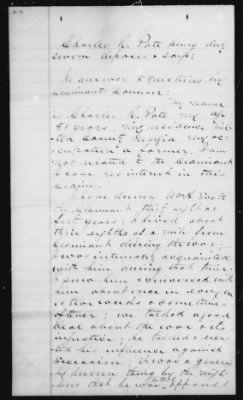 Charles R. Pate being duly
sworn deposes & says:
In answer to questions by
claimant counsel:
My name
is Charles R. Pate my age
years. my residence
County Georgia my oc-
cupation is farmer. I am
not related to the claimant
& have no interest in this
claim.
I have known Wm H.
the claimant thirty eight or
years; I lived about
three eighths of a mile from
claimant during the war;
I was intimately acquainted
with him during that time;
I saw him & conversed with
him about once in every one
or two weeks & sometimes
oftener; we talked a good
deal about the war & its
injustice; he talked & exer-
ted his influence against
secession. It was a gener-
ally known thing by the neigh-
bors that he was opposed to